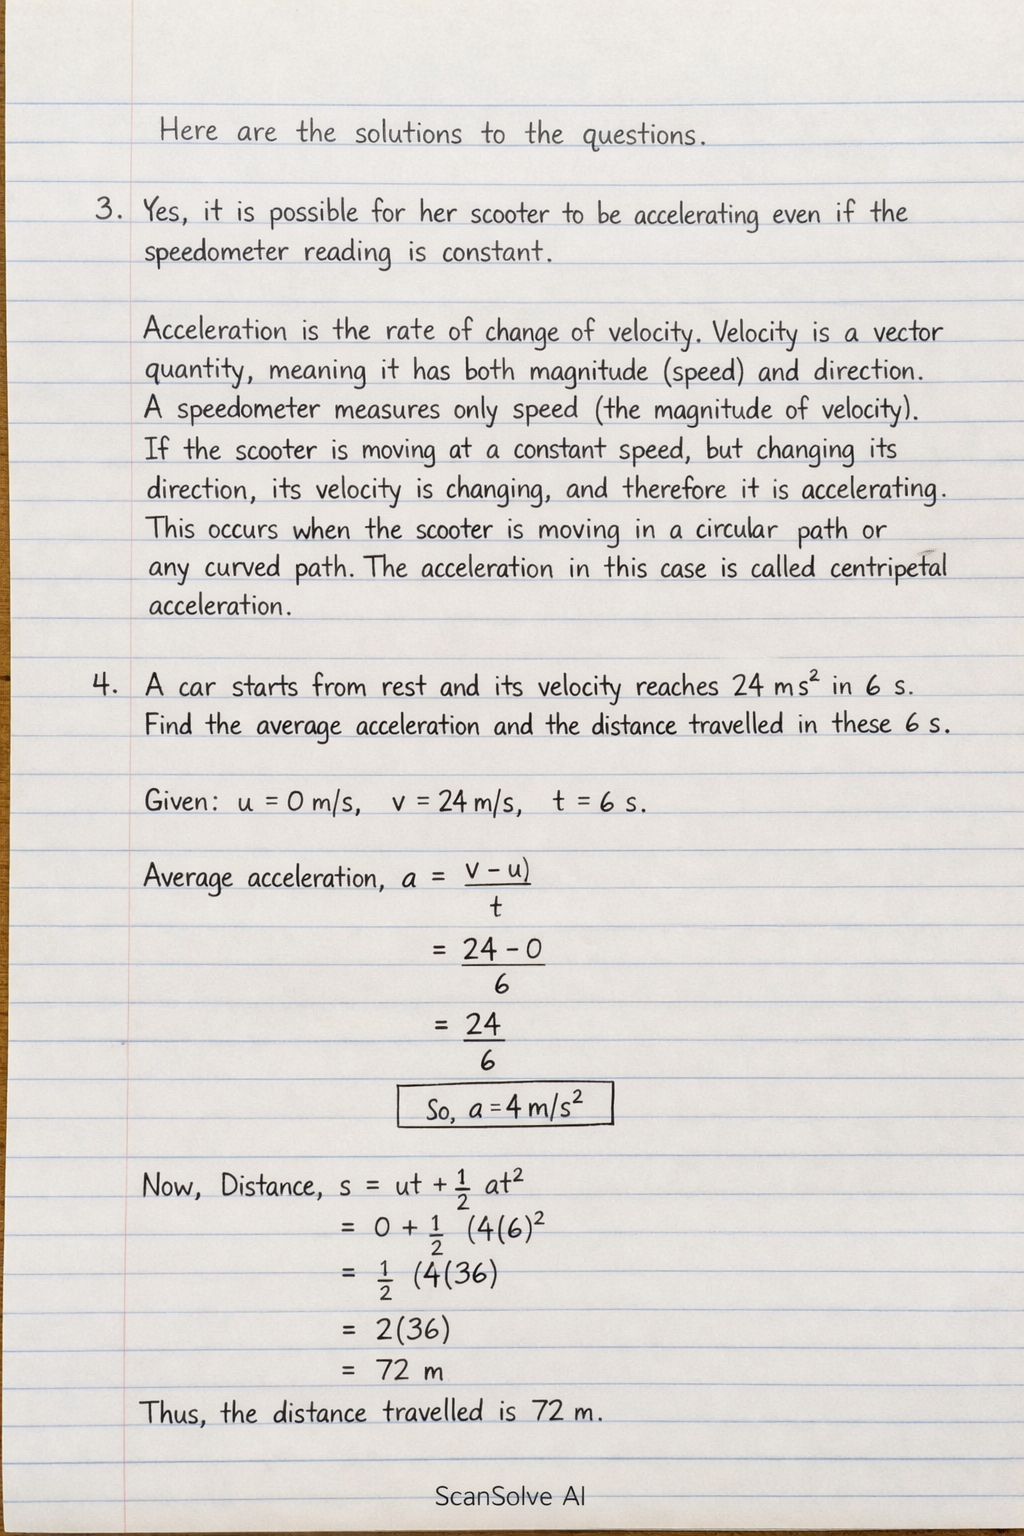 Here are the solutions to the questions.
3. Yes, it is possible for her scooter to be accelerating even if the
speedometer reading is constant.
Acceleration is the rate of change of velocity. Velocity is a vector
quantity, meaning it has both magnitude (speed) and direction.
A speedometer measures only speed (the magnitude of velocity).
If the scooter is moving at a constant speed, but changing its
direction, its velocity is changing, and therefore it is accelerating.
This occurs when the scooter is moving in a circular path or
any curved path. The acceleration in this case is called centripetal
acceleration.
4. A car starts from rest and its velocity reaches 24 ms² in 6 s.
Find the average acceleration and the distance travelled in these 6 s.
Given: u = 0 m/s, v = 24 m/s, t = 6 s.
Average acceleration, a = v - u)
t
= 24 - 0
6
= 24
6
So, a = 4 m/s²
Now, Distance, s = ut + 1/2 at²
= 0 + 1/2 (4(6)²
= 1/2 (4(36)
= 2(36)
= 72 m
Thus, the distance travelled is 72 m.
ScanSolve AI